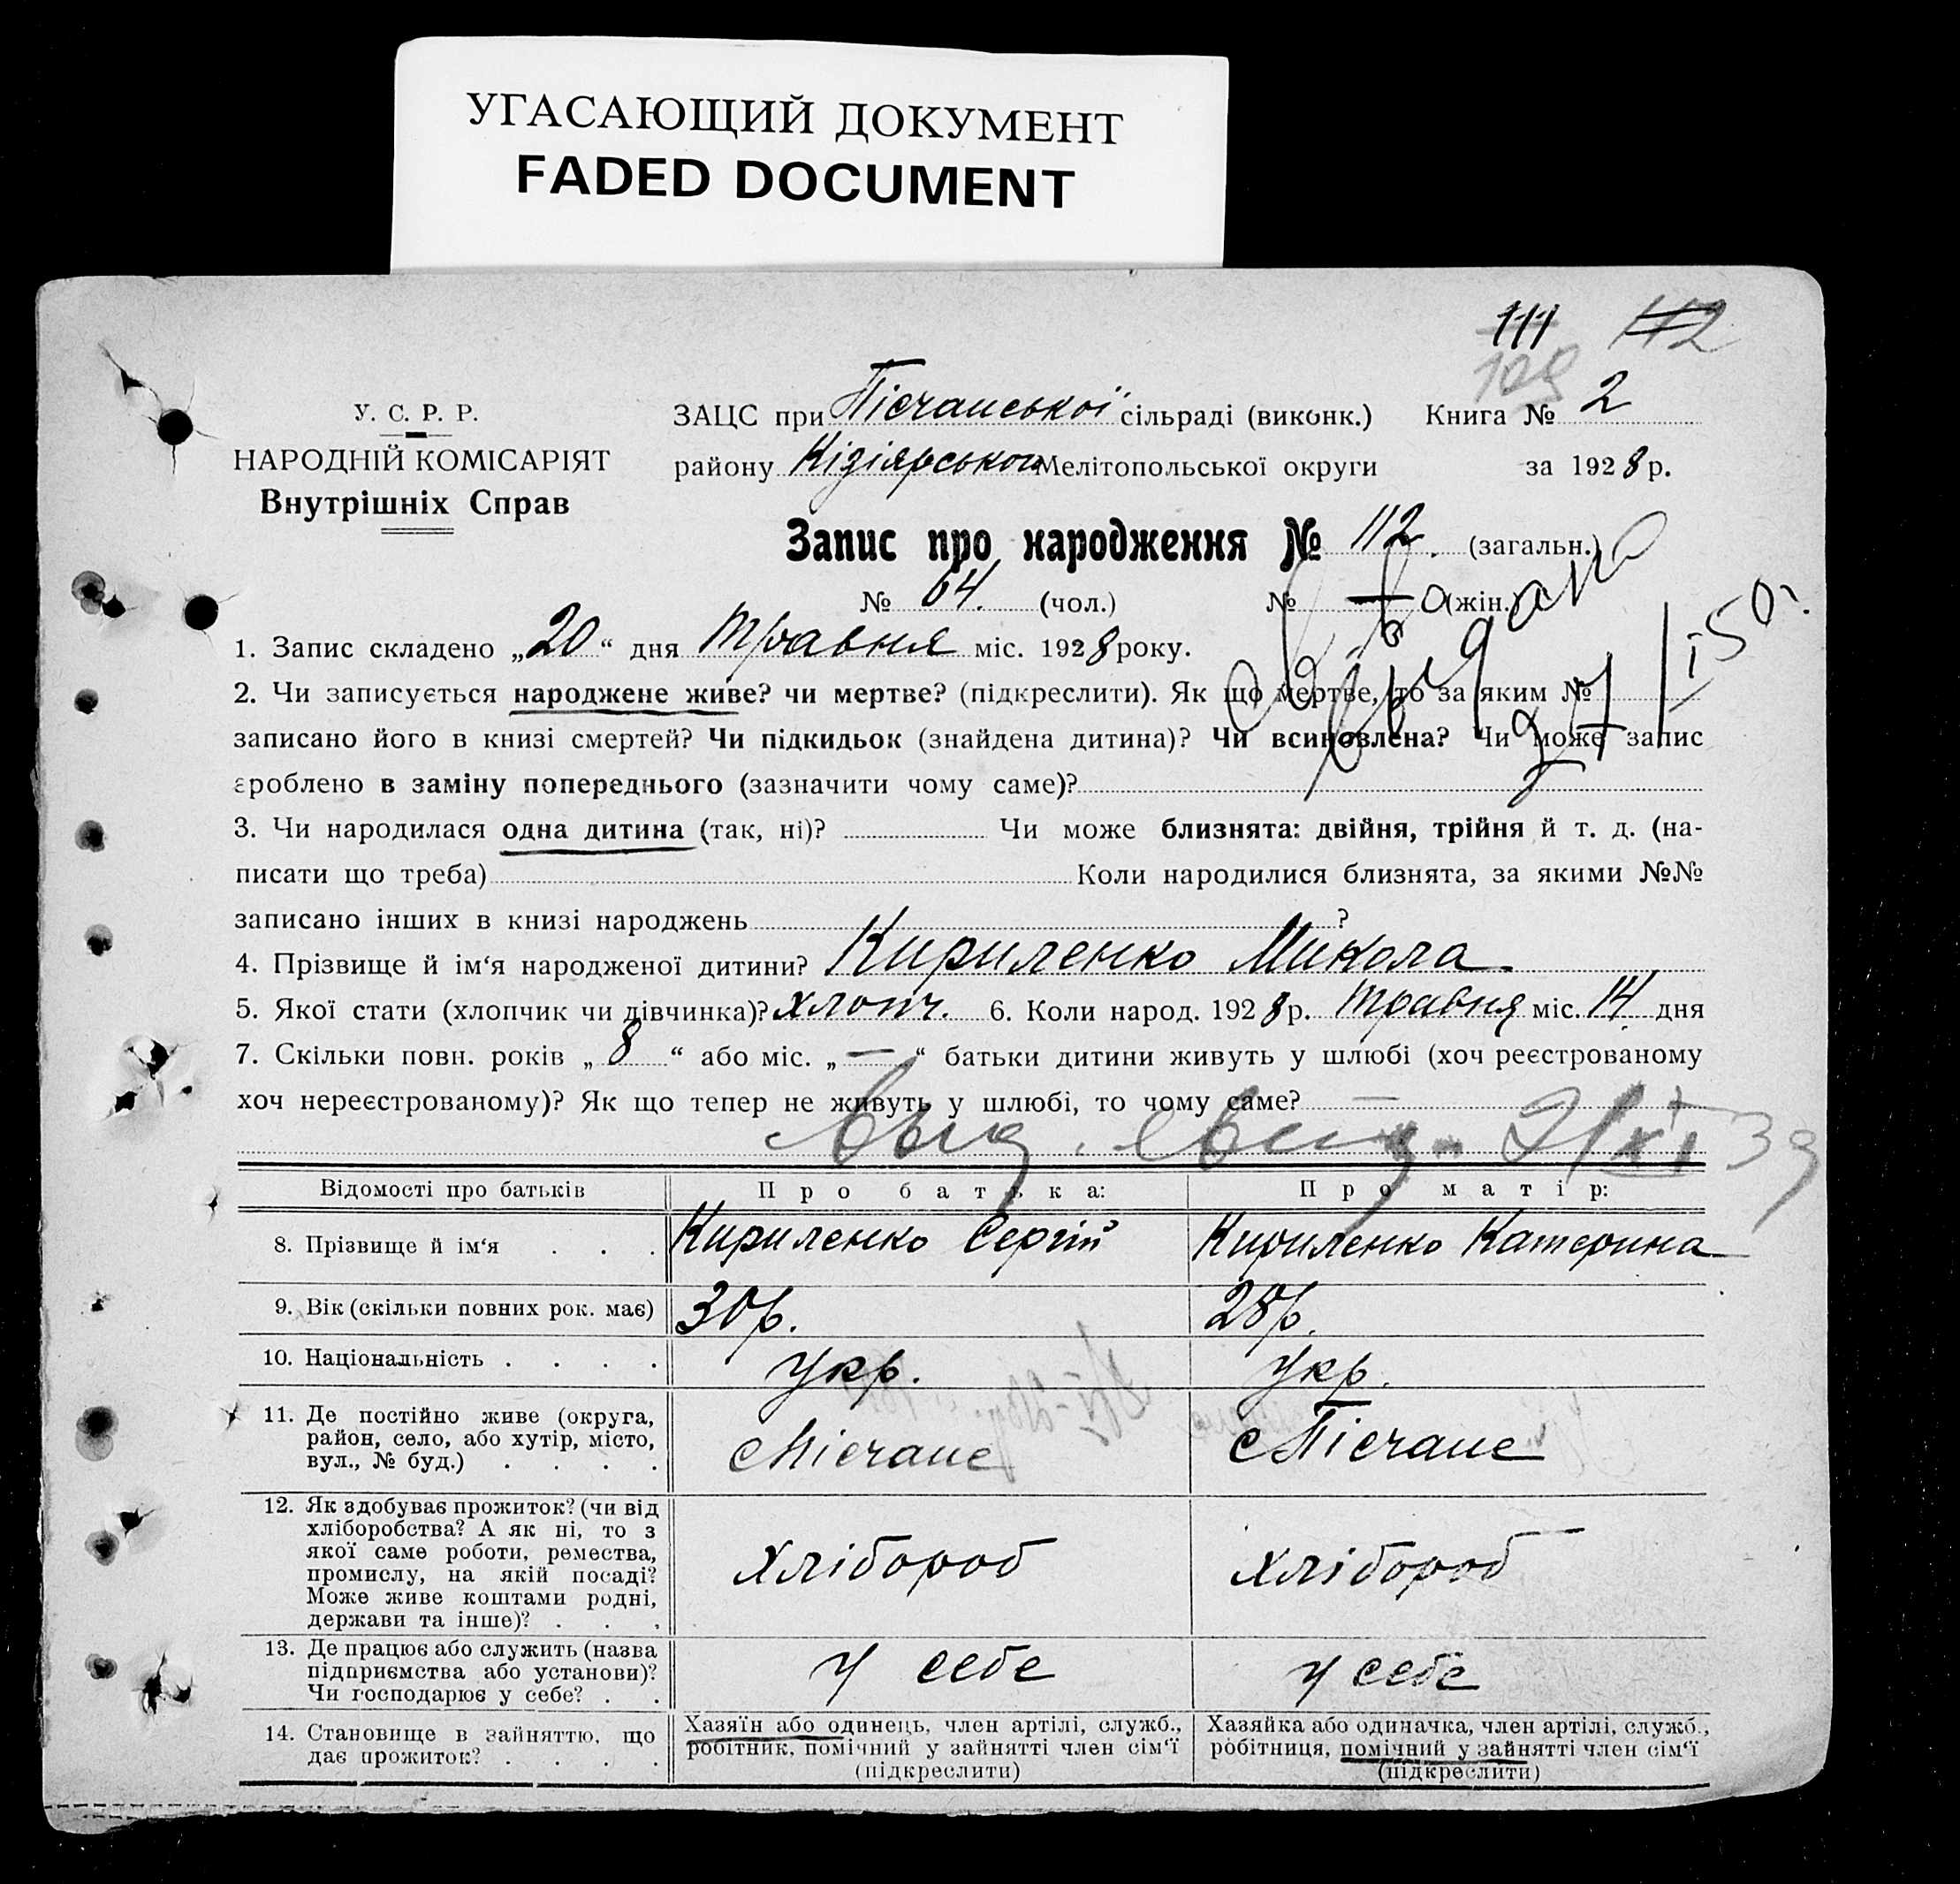 УГАСАЮЩИЙ ДОКУМЕНТ
FADED DOCUMENT
111 112
109
У. С. Р. Р.
НАРОДНІЙ КОМІСАРІЯТ
Внутрішніх Справ
ЗАЦС при Пісчанської сільраді (виконк.) Книга № 2
району Кізіярського Мелітопольської округи за 1928 р.
Запис про народження № 112. (загальн.)
№ 64. (чол.) № — (жін.)
1. Запис складено „20“ дня Травня міс. 1928 року.
2. Чи записується народжене живе? чи мертве? (підкреслити). Як що мертве, то за яким №
записано його в книзі смертей? Чи підкидьок (знайдена дитина)? Чи всиновлена? Чи може запис
зроблено в заміну попереднього (зазначити чому саме)?
3. Чи народилася одна дитина (так, ні)? Чи може близнята: двійня, трійня й т. д. (на-
писати що треба) Коли народилися близнята, за якими №№
записано інших в книзі народжень ?
4. Прізвище й ім‘я народженої дитини? Кириленко Микола.
5. Якої стати (хлопчик чи дівчинка)? хлопч. 6. Коли народ. 1928 р. Травня міс. 14. дня
7. Скільки повн. років „ 8 “ або міс. „ — “ батьки дитини живуть у шлюбі (хоч реєстрованому
хоч нереєстрованому)? Як що тепер не живуть у шлюбі, то чому саме? —
Відомості про батьків Про батька: Про матір:
8. Прізвище й ім‘я . . . Кириленко Сергій Кириленко Катерина
9. Вік (скільки повних рок. має) 30 р. 28 р.
10. Національність . . . . Укр. Укр.
11. Де постійно живе (округа,
район, село, або хутір, місто,
вул., № буд.) . . . . сПісчане сПісчане
12. Як здобуває прожиток? (чи від
хліборобства? А як ні, то з
якої саме роботи, ремества,
промислу, на якій посаді?
Може живе коштами родні,
держави та інше)? . . . хлібороб хлібороб
13. Де працює або служить (назва
підприємства або установи)?
Чи господарює у себе? . . у себе у себе
14. Становище в зайняттю, що
дає прожиток? . . . .
Хазяїн або одинець, член артілі, служб.,
робітник, помічний у зайнятті член сім‘ї
(підкреслити)
Хазяйка або одиначка, член артілі, служб.,
робітниця, помічний у зайнятті член сім‘ї
(підкреслити)